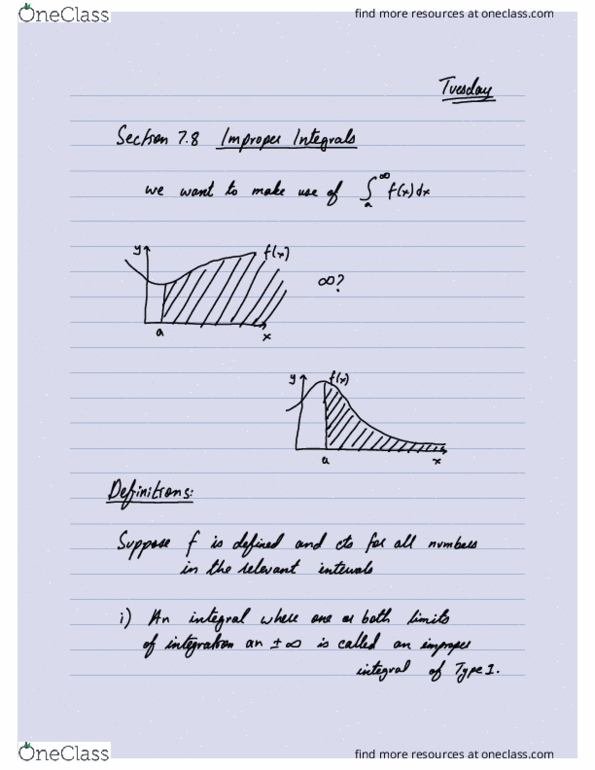 OneClass
find more resources at oneclass.com
Tuesday
Section 7.8 Improper Integrals
we want to make use of ∫_a^∞ f(x)dx
y f(x)
∞?
a x
y f(x)
a x
Definitions:
Suppose f is defined and cts for all numbers
in the relevant intervals
i) An integral where one or both limits
of integration an ±∞ is called an improper
integral of Type 1.
OneClass
find more resources at oneclass.com